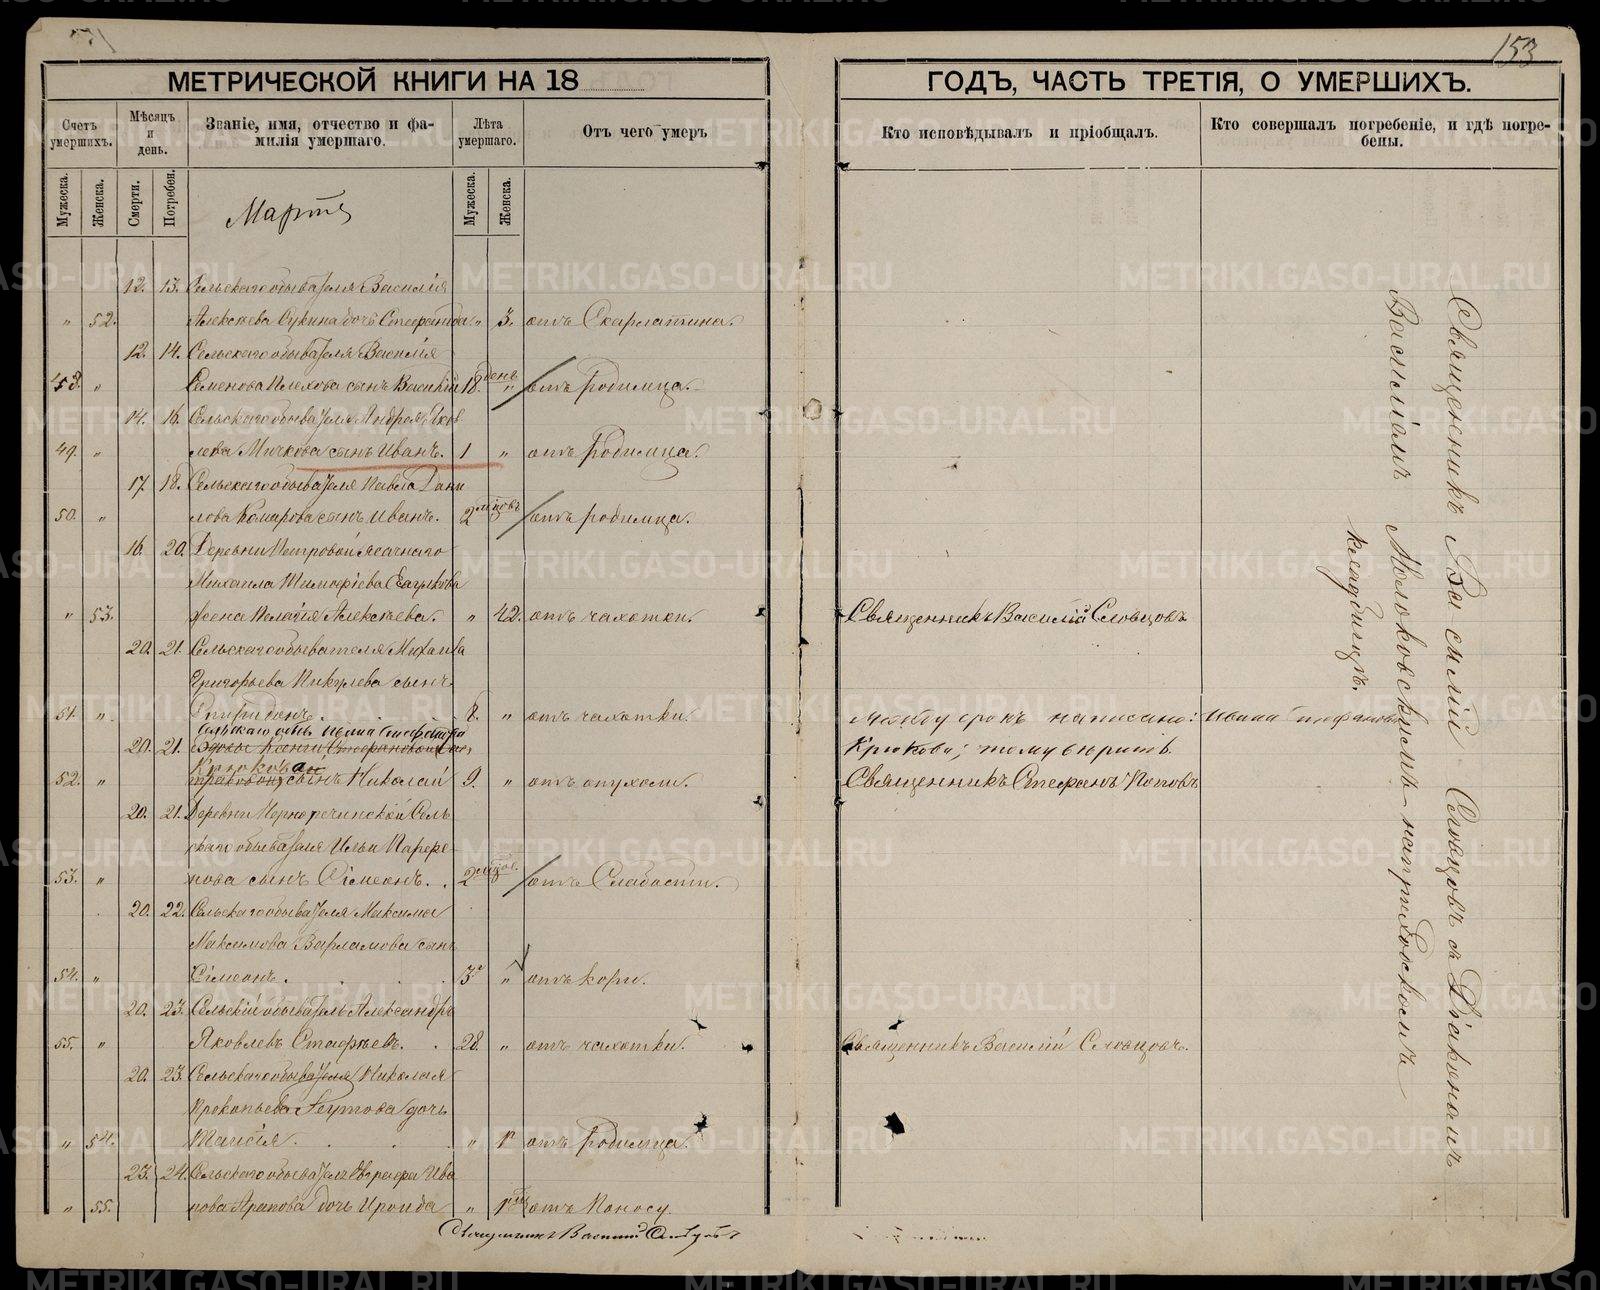 153
МЕТРИЧЕСКОЙ КНИГИ НА 18
ГОДЪ, ЧАСТЬ ТРЕТІЯ, О УМЕРШИХЪ.
Счетъ умершихъ.
Мѣсяцъ и день.
Званіе, имя, отчество и фа-
милія умершаго.
Лѣта умершаго.
Отъ чего умеръ
Кто исповѣдывалъ и пріобщалъ.
Кто совершалъ погребеніе, и гдѣ погре-
бены.
Мужеска.
Женска.
Смерти.
Погребен.
Мужеска.
Женска.
Марта
12. 13. Сельскаго обывателя Василія
" 52. Алексѣева Сукина дочь Стефанида. " 3. отъ Скарлатина.
12. 14. Сельскаго обывателя Василія
48. " Семенова Плехова сынъ Василій 18. день " отъ родимца.
14. 16. Сельскаго обывателя Андрея Яков
49. " лева Мичкова сынъ Иванъ. 1 " отъ родимца.
17 18. Сельскаго обывателя Павла Дани
50. " лова Комарова сынъ Иванъ. 2 мѣсяцовъ отъ родимца.
16. 20. Деревни Петровой ясачнаго
Михаила Тимофіева
" 53. жена Пелагія Алексѣева. " 42. отъ чахотки. Священникъ Василій Словцовъ
20. 21. Сельскаго обывателя Михаила
Григорьева Пикулева сынъ
51. " Спиридонъ. 8. " отъ чахотки. Между срокъ написано: Ивана Стефанова
Сельскаго обыв. Ивана Стефанова
20. 21. Крюкова; тому вѣрить
Крюкова
52. " сынъ Николай 9. " отъ опухоли. Священникъ Стефанъ Поповъ
20. 21. Деревни Чернореченской Сель
скаго обывателя Ильи Парфе
53. " нова сынъ Сімеонъ. 2 мѣсяцов. отъ Слабости.
20. 22. Сельскаго обывателя Максима
Максимова Варламова сынъ
54. " Сімеонъ. 3 " отъ кори.
20. 23. Сельскій обыватель Александръ
55. " Яковлевъ Стафѣевъ. 28. " отъ чахотки. Священникъ Василій Словцовъ.
20. 23. Сельскаго обывателя Николая
Прокопьева Реутова дочь
" 54. Таисія. " 1 отъ родимца.
23. 24. Сельскаго обывателя Ива
" 55. нова Арапова дочь Ироида " 1 отъ Поносу
Священникъ Василій Словцовъ
Священникъ Василій Словцовъ съ Діакономъ
Василіемъ Молоковскимъ на приходскомъ
кладбищѣ.
METRIKI.GASO-URAL.RU